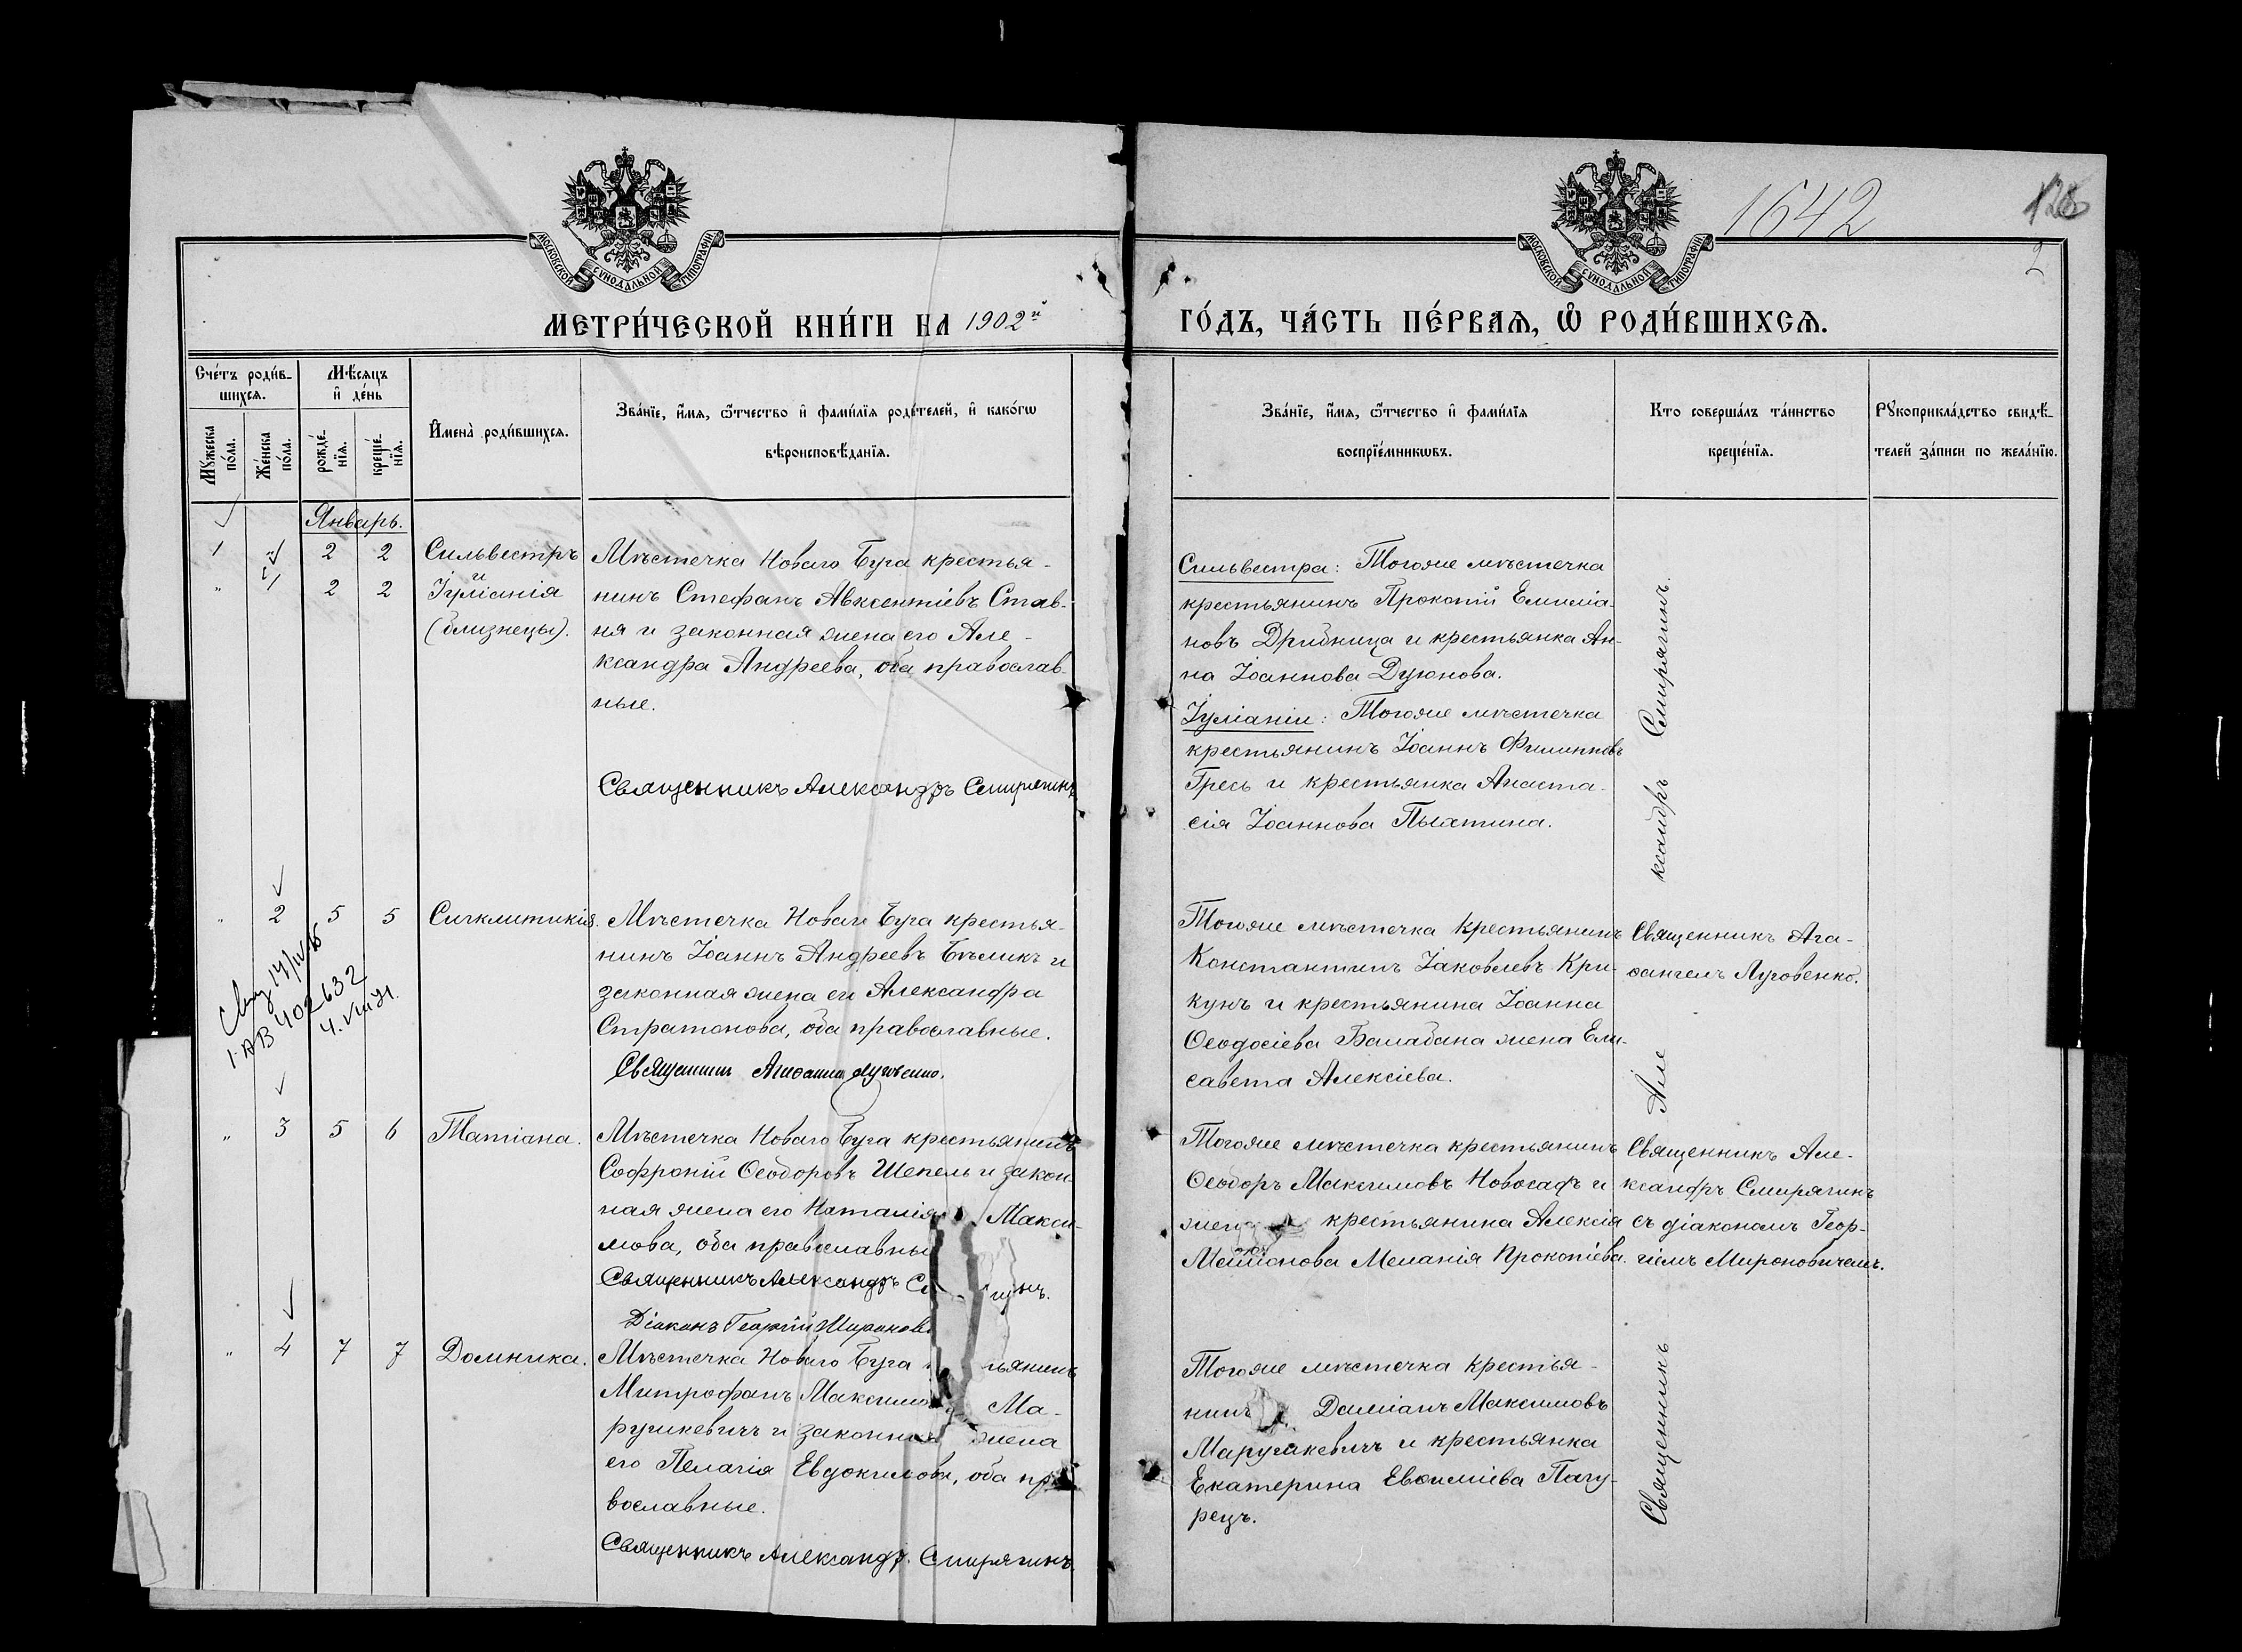 1642
2
МОСКОВСКОЙ СУНОДАЛЬНОЙ ТИПОГРАФІИ
МОСКОВСКОЙ СУНОДАЛЬНОЙ ТИПОГРАФІИ
МЕТРИ́ЧЕСКОЙ КНИ́ГИ НА 1902й
ГО́ДЪ, ЧА́СТЬ ПЕ́РВАЯ, Ѽ РОДИ́ВШИХСЯ.
Сче́тъ роди́в-
шихся.
Мꙋжеска по́ла.
Же́нска по́ла.
Мѣ́сяцъ
и҆ де́нь
рожде́-
нїя.
креще́-
нїя.
И҆мена̀ роди́вшихся.
Зва́нїе, и҆́мя, ѻ҆́тчество и҆ фами́лїя роди́телей, и҆ како́гѡ
вѣроисповѣ́данїя.
Зва́нїе, и҆́мя, ѻ҆́тчество и҆ фами́лїя
воспрїе́мникѡвъ.
Кто соверша́лъ та́инство
креще́нїя.
Рꙋкоприкла́дство свидѣ́-
телей за́писи по жела́нїю.
Январь.
1 2 2 Сильвестръ
и
" 1 2 2 Іуліанія
(близнецы).
Мѣстечка Новаго Буга крестья-
нинъ Стефанъ Авксентіевъ Став-
ня и законная жена его Але-
ксандра Андреева, оба православ-
ные.
Священникъ Александръ Смирягинъ
Сильвестра: Тогоже мѣстечка
крестьянинъ Прокопій Емиліа-
новъ Дрибница и крестьянка Ан-
на Іоаннова Дуюнова.
Іуліаніи: Тогоже мѣстечка
крестьянинъ Іоаннъ Филипповъ
Гресь и крестьянка Анаста-
сія Іоаннова Пыхтина.
Священникъ Александръ Смирягинъ.
" 2 5 5 Сигклитикія.
Мѣстечка Новаго Буга крестья-
нинъ Іоаннъ Андреевъ Бѣликъ и
законная жена его Александра
Стратонова, оба православные.
Священникъ Агаѳангелъ Луговенко.
Тогоже мѣстечка крестьянинъ
Константинъ Іаковлевъ Кри-
кунъ и крестьянина Іоанна
Ѳеодосіева Балабана жена Ели-
савета Алексіева.
Священникъ Ага-
ѳангелъ Луговенко.
1-АВ 402632
" 3 5 6 Татіана.
Мѣстечка Новаго Буга крестьянинъ
Софроній Ѳеодоровъ Шепель и закон-
ная жена его Наталія Макси-
мова, оба православные
Священникъ Александръ
Діаконъ Георгій Миронов
Тогоже мѣстечка крестьянинъ
Ѳеодоръ Максимовъ Новосадъ и
жена крестьянина Алексія
Меланія Прокопіева.
Священникъ Але-
ксандръ Смирягинъ
съ діакономъ Геор-
гіемъ Мироновичемъ.
" 4 7 7 Домника.
Мѣстечка Новаго Буга ьянинъ
Митрофанъ Максимо Ма-
рушкевичъ и законная жена
его Пелагія Евдокимова, оба пра-
вославные.
Священникъ Александръ Смирягинъ.
Тогоже мѣстечка крестья-
нинъ Даміанъ Максимовъ
Марушкевичъ и крестьянка
Екатерина Евѳиміева Пагу-
рецъ.